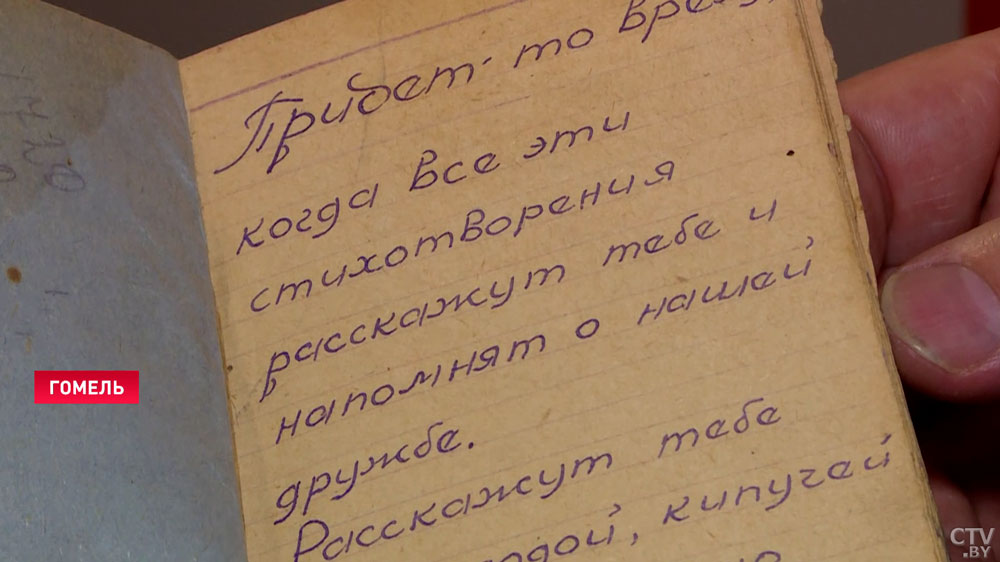 Придет-то
когда все эти
стихотворения
расскажут тебе и
напомнят о нашей
дружбе.
Расскажут тебе
кипучей
ГОМЕЛЬ
CTV
.BY